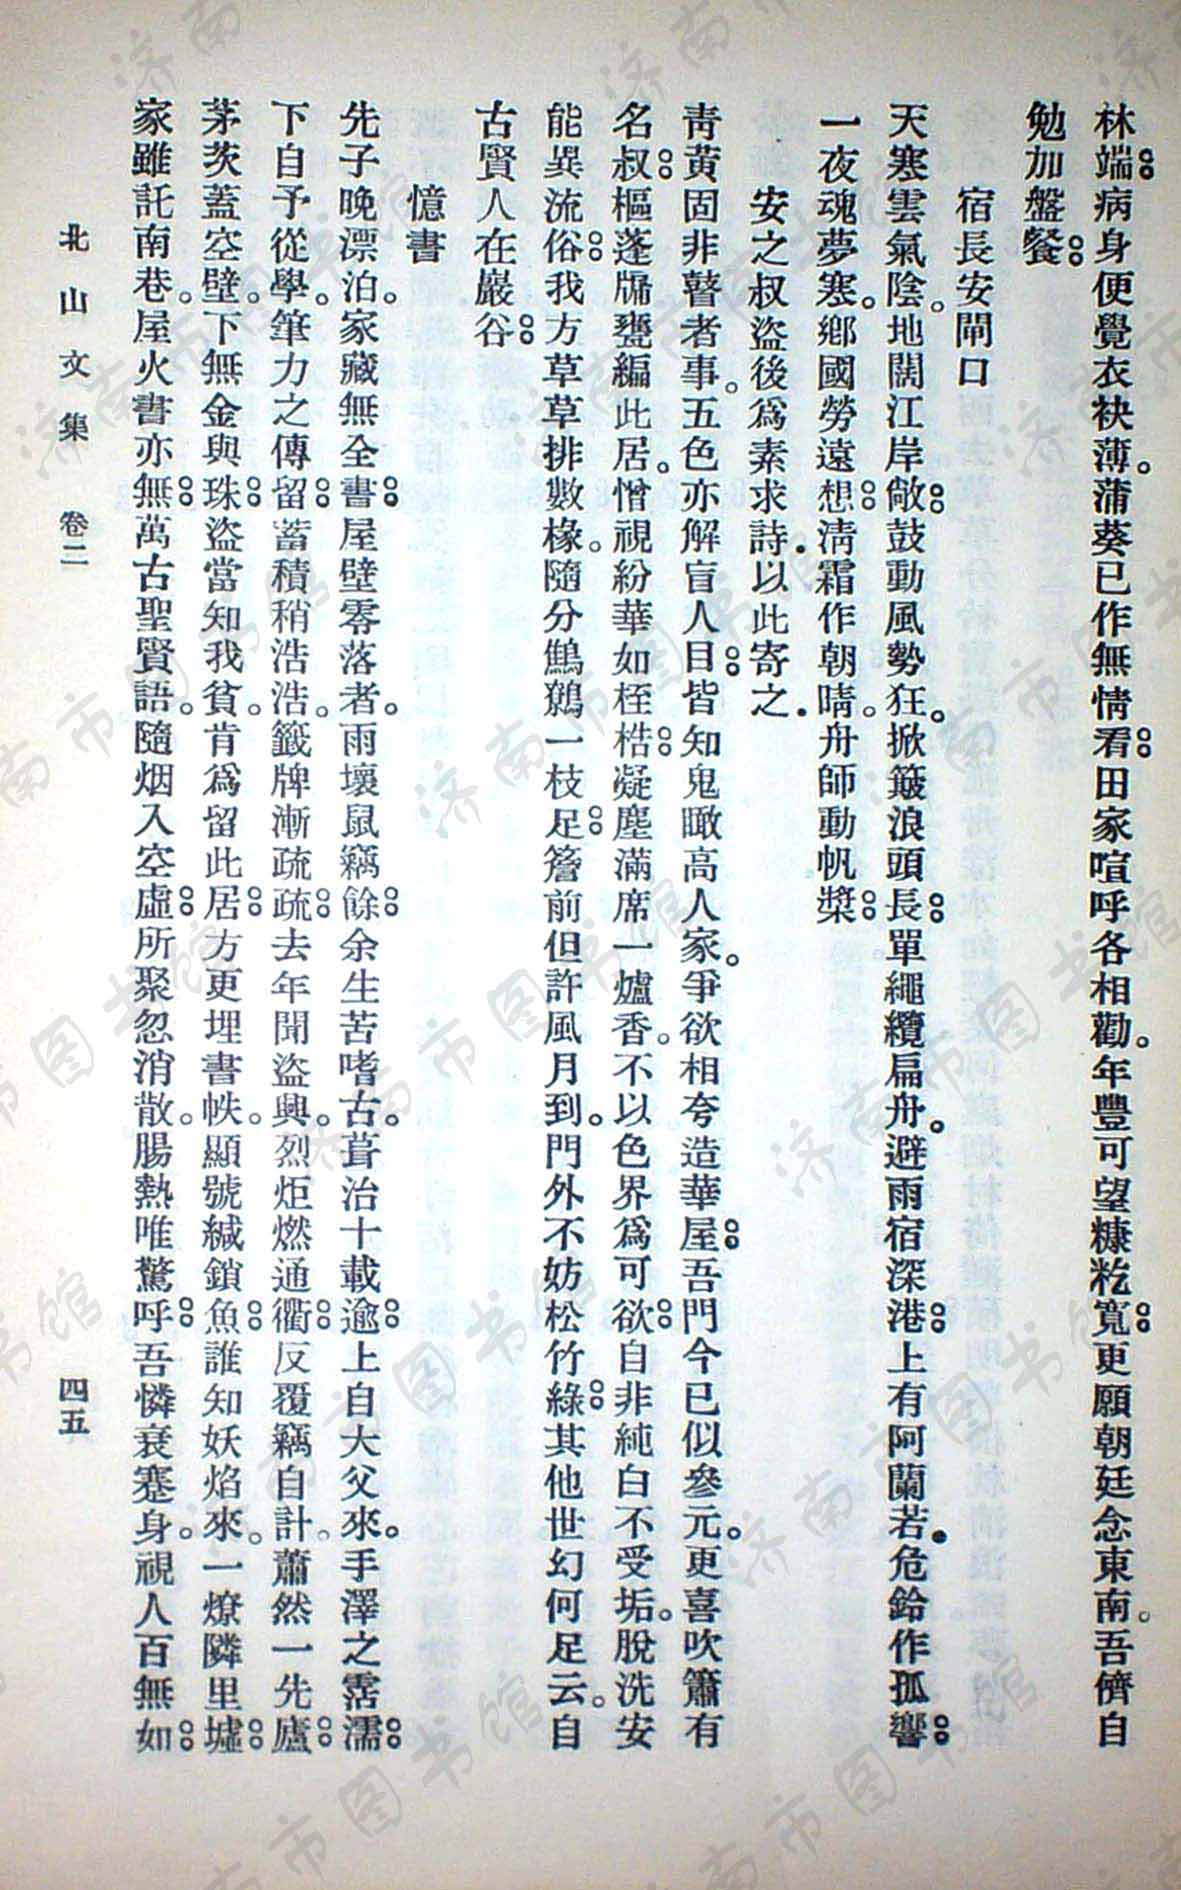 林端病身便覺衣袂薄。蒲葵已作無情看田家喧呼各相勸。年豐可望糠籺寬更願朝廷念東南。吾儕自
勉加盤餐
宿長安閘口
天寒雲氣陰。地闊江岸敞鼓動風勢狂。掀簸浪頭長單繩纜扁舟。避雨宿深港上有阿蘭若。危鈴作孤響
一夜魂夢寒。鄉國勞遠想清霜作朝晴。舟師動帆槳
安之叔盜後爲素求詩。以此寄之。
青黃固非瞽者事。五色亦解盲人目皆知鬼瞰高人家。爭欲相夸造華屋吾門今已似參元。更喜吹簫有
名叔樞蓬牖甕編此居。憎視紛華如桎梏凝塵滿席一爐香。不以色界爲可欲自非純白不受垢。脫洗安
能異流俗我方草草排數椽。隨分鷦鷯一枝足簷前但許風月到。門外不妨松竹綠其他世幻何足云。自
古賢人在巖谷
憶書
先子晚漂泊。家藏無全書屋壁零落者。雨壞鼠竊餘余生苦嗜古。葺治十載逾上自大父來。手澤之霑濡
下自予從學。筆力之傳留蓄積稍浩浩。籤牌漸疏疏去年聞盜興。烈炬燃通衢反覆竊自計。蕭然一先廬
茅茨蓋空壁。下無金與珠盜當知我貧。肯爲留此居方更埋書帙。顯號緘鎖魚誰知妖焰來。一燎隣里墟
家雖託南巷。屋火書亦無萬古聖賢語。隨烟入空虛所聚忽消散。腸熱唯驚呼吾憐衰蹇身。視人百無如
北山文集 卷二 四五
济南市图书馆